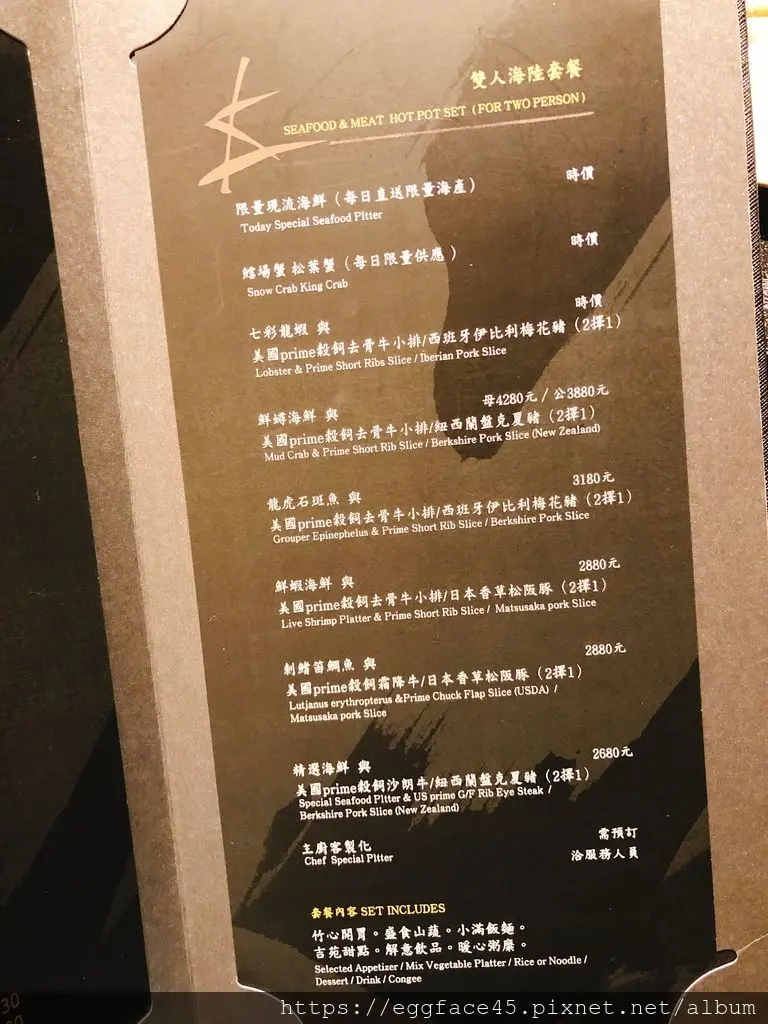 雙人海陸套餐
SEAFOOD & MEAT HOT POT SET (FOR TWO PERSON)
限量現流海鮮（每日直送限量海產） 時價
Today Special Seafood Pltter
鱈場蟹 松葉蟹（每日限量供應） 時價
Snow Crab King Crab
時價
七彩龍蝦 與
美國prime穀飼去骨牛小排/西班牙伊比利梅花豬（2擇1）
Lobster & Prime Short Ribs Slice / Iberian Pork Slice
母4280元 / 公3880元
鮮蟳海鮮 與
美國prime穀飼去骨牛小排/紐西蘭盤克夏豬（2擇1）
Mud Crab & Prime Short Rib Slice / Berkshire Pork Slice (New Zealand)
3180元
龍虎石斑魚 與
美國prime穀飼去骨牛小排/西班牙伊比利梅花豬（2擇1）
Grouper Epinephelus & Prime Short Rib Slice / Berkshire Pork Slice
2880元
鮮蝦海鮮 與
美國prime穀飼去骨牛小排/日本香草松阪豚（2擇1）
Live Shrimp Platter & Prime Short Rib Slice / Matsusaka pork Slice
2880元
刺鰭笛鯛魚 與
美國prime穀飼霜降牛/日本香草松阪豚（2擇1）
Lutjanus erythropterus &Prime Chuck Flap Slice (USDA) /
Matsusaka pork Slice
2680元
精選海鮮 與
美國prime穀飼沙朗牛/紐西蘭盤克夏豬（2擇1）
Special Seafood Pltter & US prime G/F Rib Eye Steak /
Berkshire Pork Slice (New Zealand)
主廚客製化 需預訂
Chef Special Pltter 洽服務人員
套餐內容 SET INCLUDES
竹心開胃。盛食山蔬。小滿飯麵。
吉苑甜點。解意飲品。暖心粥糜。
Selected Appetizer / Mix Vegetable Platter / Rice or Noodle /
Dessert / Drink / Congee
30
https://eggface45.pixnet.net/album